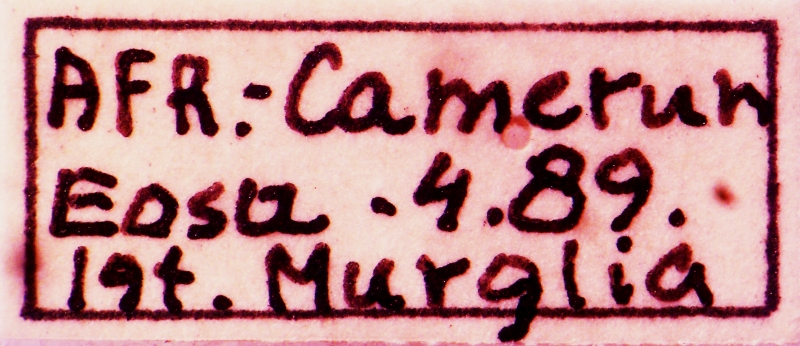 AFR.- Camerun
Eosa .4.89.
lgt. Murglia